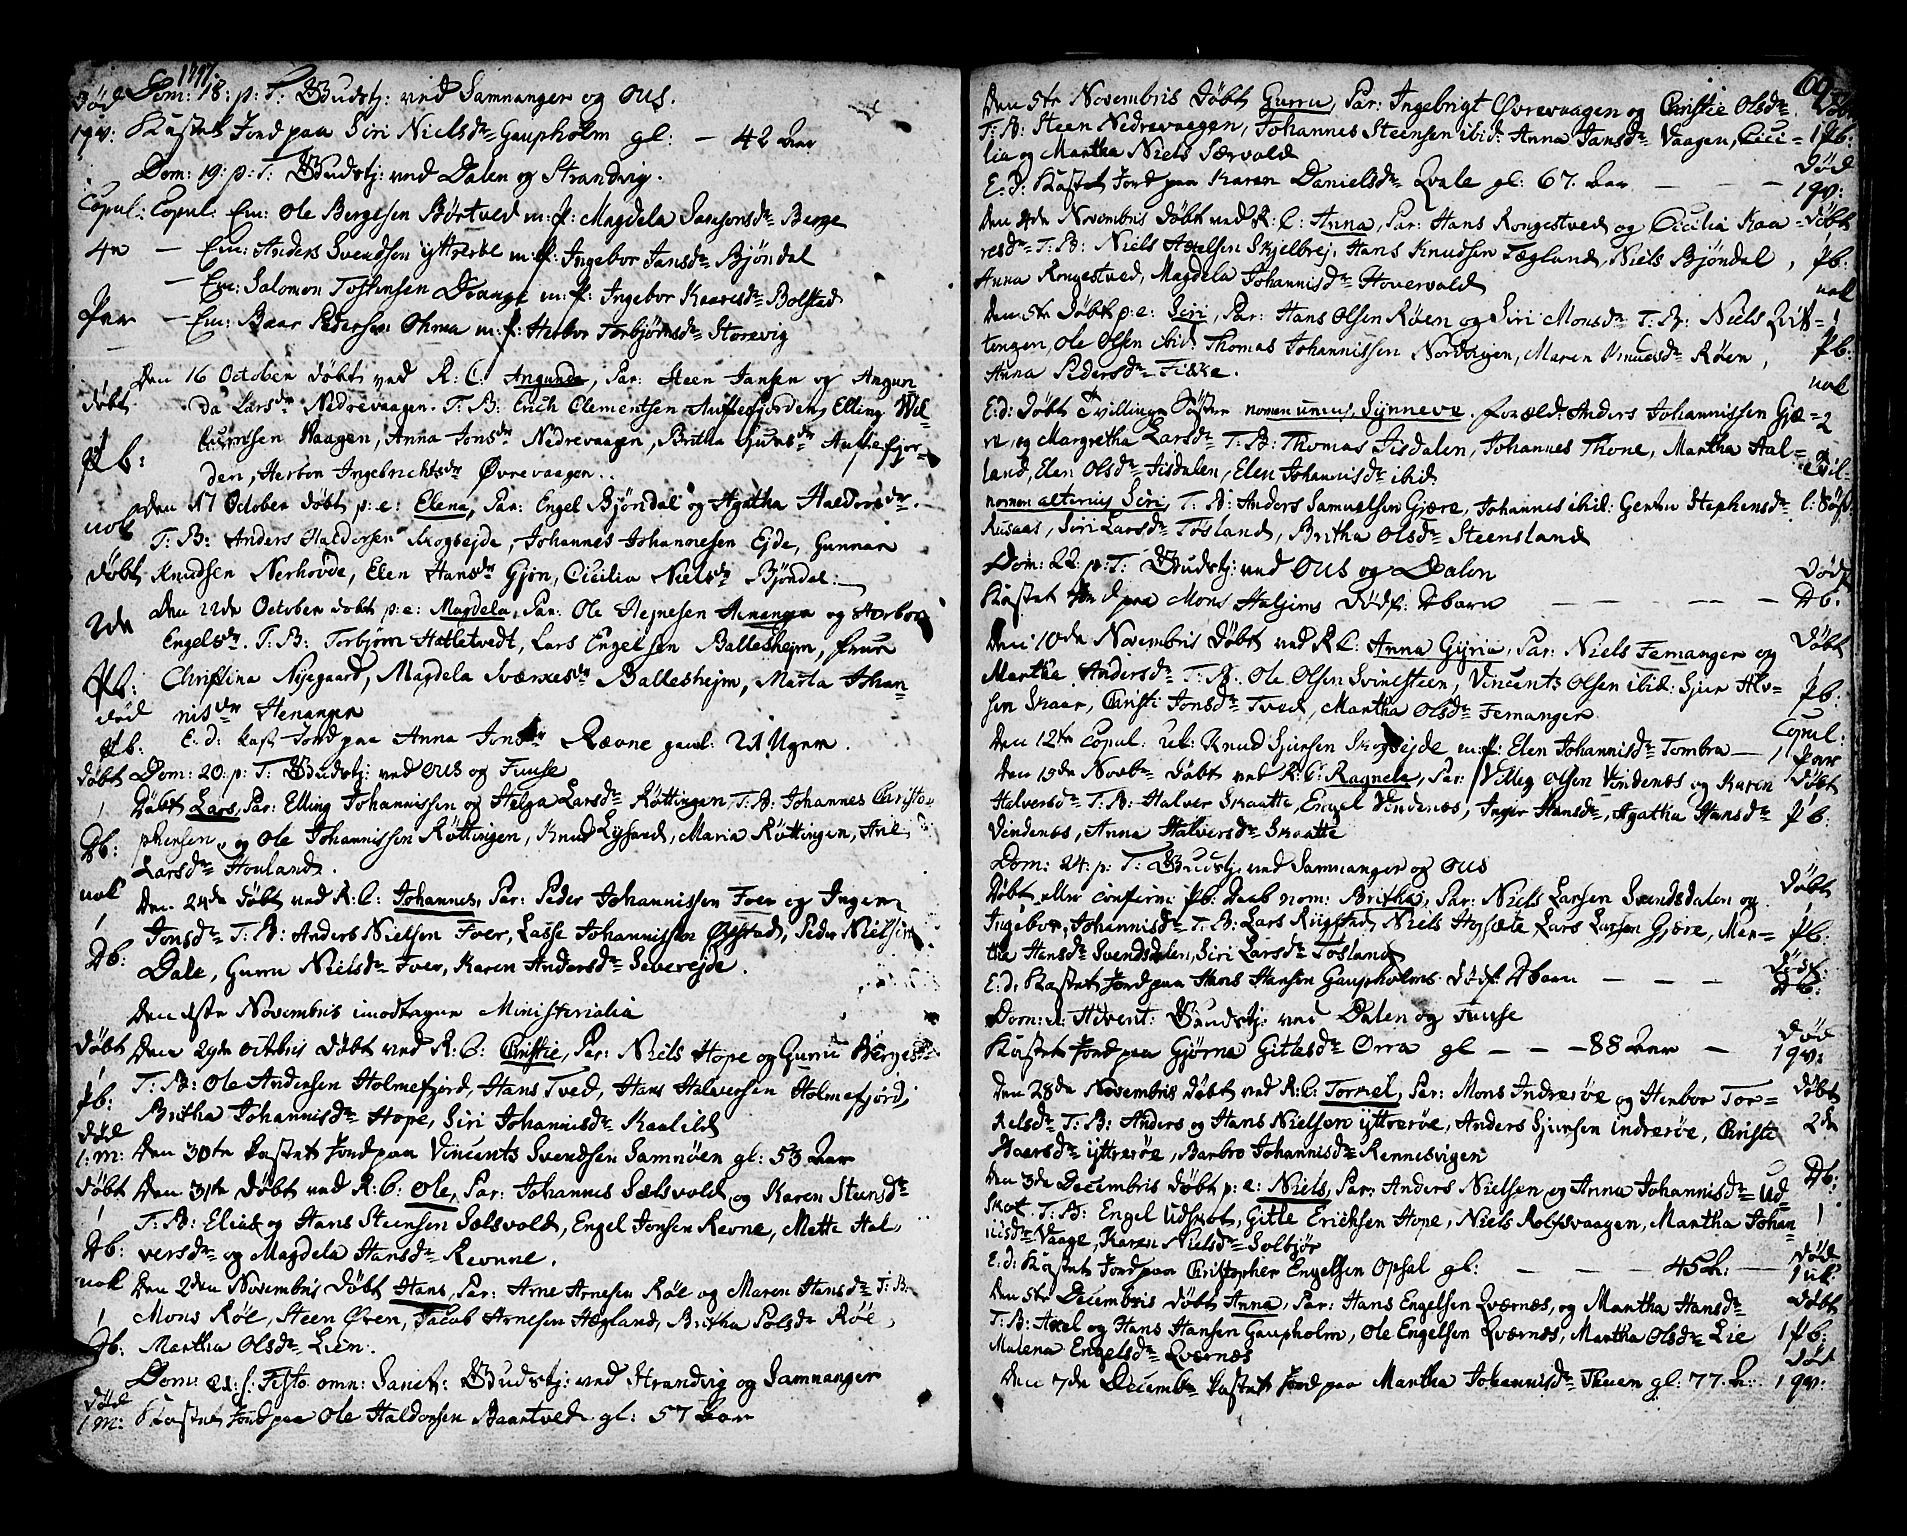 1797.
Død Dom: 18: p: T: Gudstj: ved Samnanger og Ous.
1 qv: Kastet Jord paa Siri Nielsdr Gaupholm gl: — 42 Aar
Dom: 19: p: T: Gudstj: ved Dalen og Strandvig.
Copul: Copul: Em: Ole Bergesen Børtved m: p: Magdela Samsonsdr Berge
4re — Em: Anders Svendsen Yttrerøe m: p: Ingebor Jansdr Bjøndal
— Em: Salomon Tostensen Drange m: p: Ingebor Kaaresdr Bolstad
Par — Em: Baar Pedersen Ohma m: p: Herbor Torbjørnsdr Storevig
Den 16 October døbt ved R: C: Angunda, Par: Steen Jansen og Angun-
døbt da Larsdr Nedrevaagen. T: B: Erich Clementsen Auffefjorden, Elling Wil-
lumsen Vaagen, Anna Jonsdr Nedrevaagen, Britha Giursdr Auffefjor-
Pb: den, Herbor Ingebrichtsdr Øvrevaagen.
nok den 17 October døbt p: e: Elena, Par: Engel Bjøndal og Agatha Haldorsdr.
T: B: Anders Haldorsen Skogsejde, Johannes Johannesen Ejde, Gunnar
døbt Knudsen Nerhovde, Elen Hansdr Gjøn, Cicilia Nielsdr Bjøndal.
2de Den 22de October døbt p: e: Magdela, Par: Ole Hejnesen Henanger og Herbor
Engelsdr. T: B: Torbjørn Hatletvedt, Lars Engelsen Ballesheim, Frue
Pb: Christina Nijegaard, Magdela Sværkesdr Ballesheim, Marta Johan-
død nisdr Henanger
Pb: E: d: kast Jord paa Anna Jonsdr Røvne gaml: 21 Uger.
døbt Dom: 20: p: T: Gudstj: ved Ous og Fuuse
1 Døbt Lars, Par: Elling Johannissen og Helga Larsdr Røttingen, T: B: Johannes Christo-
Db: phersen, og Ole Johannissen Røttingen, Knud Lysand, Maria Røttingen, Ane
Larsdr Houland.
nok Den 24de døbt ved R: C: Johannes, Par: Peder Johannissen Foer og Inger
1 Jonsdr T: B: Anders Nielsen Foer, Lasse Johannissen Øystad, Peder Nielsen
Db: Dale, Guru Nielsdr Foer, Karen Andersdr Severejde.
Den 1ste Novembris imodtagne Ministerialia
døbt Den 29de octbris døbt ved R: C: Christie, Par: Niels Hope og Guru Børges-
Pb: T: B: Ole Andersen Holmefjord, Hans Tved, Hans Halversen Holmefjord,
Britha Johannisdr Hope, Siri Johannisdr Kaalild
død
1: m: Den 30te kastet Jord paa Vincents Svendsen Samnøen gl: 53 Aar
døbt Den 31te døbt ved R: C: Ole, Par: Johannes Sælsvold og Karen Steensdr
1 T: B: Elias og Hans Steensen Sælsvold, Engel Jonsen Revne, Mette Hal
Db: versdr og Magdela Hansdr Revne.
nok Den 2den Novembris Døbt Hans, Par: Arne Arnesen Røe og Maren Hansdr T: B:
1 Mons Røe, Steen Øren, Jacob Arnesen Hægland, Britha Polsdr Røe,
Db: Martha Olsdr Lien.
Dom: 21: f: Festo omn: Sanct: Gudstj: ved Strandvig og Samnanger
død
1 m: Kastet Jord paa Ole Haldorsen Baartved gl: 57 Aar
69
Den 5te Novembris døbt Guru, Par: Ingebrigt Øvrevaagen og Christie Olsdr. Døbt
T: B: Steen Nedrevaagen, Johannes Steensen ibid: Anna Jansdr Vaagen, Cici- 1 Pb:
lia og Martha Niels Særvold
E: d: Kastet Jord paa Karen Danielsdr Qvale gl: 67. Aar — — — Død 1 qv:
Den 4de Novembris døbt ved R: C: Anna, Par: Hans Rongestved og Cicilia Kaa- døbt
resdr T: B: Niels Axelsen Skjelbrej, Hans Knudsen Tægland, Niels Bjøndal, Pb:
Anna Rongestved, Magdela Johannisdr Hovervold nok
Den 5te døbt p: e: Siri, Par: Hans Olsen Røen og Siri Monsdr T: B: Niels Qvit- 1
tengen, Ole Olsen ibid Thomas Johannissen Nordvigen, Maren Knudsdr Røen, Pb:
Anna Pedersdr Fikke. nok
E: d: døbt Tvillinge Søster nomen unius, Synneve. Foræld: Anders Johannissen Gjæ- 2
re, og Margretha Larsdr T: B: Thomas Tisdalen, Johannes Thone, Martha Aal-
land, Elen Olsdr Tisdalen, Elen Johannisdr ibid. Tvil-
nomen alterius Siri, T: B: Anders Samuelsen Gjære, Johannes ibid: Gertru Stephensdr l: Søst.
Rusaas, Siri Larsdr Tøsland, Britha Olsdr Steensland
Dom: 22: p: T: Gudstj: ved Ous og Dalen
Kastet Jord paa Mons Haljems Dødf: Dbarn — — — Dødf Db:
Den 10de Novembris døbt ved R: C: Anna Gyria, Par: Niels Femanger og Døbt
Martha Andersdr T: B: Ole Olsen Svinesteen, Vincents Olsen ibid: Sjur Alv- 1
sen Skaar, Christi Jonsdr Tved, Martha Olsdr Femanger Pb:
Den 12te Copul: uk: Knud Sjursen Skogsejde m: p: Elen Johannisdr Tombra — Copul: 1 Par
Den 15de Novbr døbt ved R: C: Ragnela, Par: Villig Olsen Vindenæs og Karen Døbt
Halversdr T: B: Halver Skaatte, Engel Vindenæs, Inger Hansdr, Agatha Hansdr Pb:
Vindenæs, Anna Halversdr Skaatte
Dom: 24: p: T: Gudstj: ved Samnanger og Ous
Døbt, eller confirm: Pb: Daab nom: Britha, Par: Niels Larsen Svendsdalen og døbt
Ingebor Johannisdr T: B: Lars Røgstad, Niels Høysæte, Lars Larsen Gjære, Mar- Pb:
tha Hansdr Svendsdalen, Siri Larsdr Tøsland
E: d: Kastet Jord paa Hans Hansen Gaupholms Dødf: Dbarn — — — Dødf: Db:
Dom: 1: Advent: Gudstj: ved Dalen og Fuuse
Kastet Jord paa Gjørna Gitlesdr Orra gl — — — 88 Aar — død 1 qv:
Den 28de Novembris døbt ved R: C: Torkel, Par: Mons Indrerøe og Herbor Tor- døbt
kelsdr T: B: Anders og Hans Nielsen Yttrerøe, Anders Sjursen Indrerøe, Christi 2de
Baarsdr Yttrerøe, Barbro Johannisdr Rennesvigen
Den 3de Decembris døbt p: e: Niels, Par: Anders Nielsen og Anna Johannisdr Ud- Db:
skot. T: B: Engel Udskot, Gitle Ericksen Hope, Niels Rolfsvaagen, Martha Johan- 1
nisdr Vaage, Karen Nielsdr Solbjør
E: d: Kastet Jord paa Christopher Engelsen Opsal gl: — — — 45 A: — død 1 uk:
Den 5te Decembris døbt Anna, Par: Hans Engelsen Qværnæs, og Martha Hansdr døbt
T: B: Axel og Hans Hansen Gaupholm, Ole Engelsen Qværnæs, Martha Olsdr Lie 1 Pb:
Malena Engelsdr Qværnæs
Den 7de Decembr kastet Jord paa Martha Johannisdr Thuen gl: 77 A: død 1 qv: